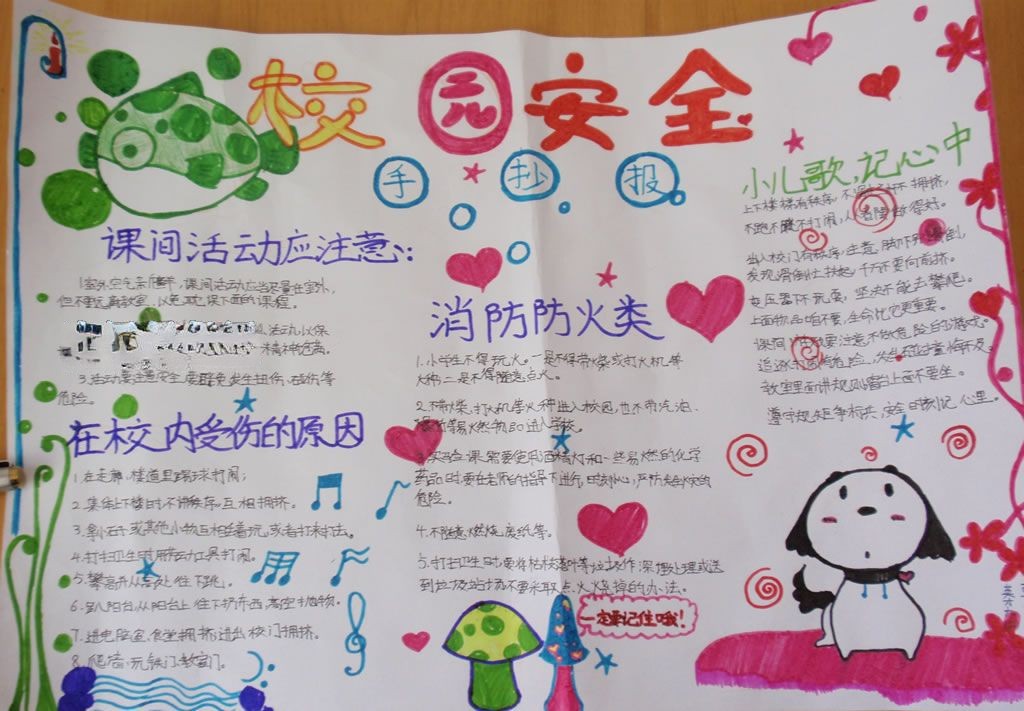 校园安全
手抄报
课间活动应注意:
1.室外空气新鲜,课间活动应当尽量在室外,
但不要远离教室,以免耽误下面的课程。
活动,以保
精神饱满。
3.活动要注意安全,要避免发生扭伤、碰伤等
危险。
在校内受伤的原因
1.在走廊、楼道里踢球打闹;
2.集体上下楼时,不讲秩序,互相拥挤。
3.拿小石子或其他小物互相掷着玩,或者打来打去。
4.打扫卫生时用劳动工具打闹。
5.攀高并从高处往下跳。
6.趴阳台,从阳台上往下扔东西,高空抛物。
7.进电脑室、食堂拥挤,进出校门拥挤。
8.爬墙、玩铁门、教室门。
消防防火类
1.小学生不得玩火。一是不得带火柴或打火机等
火种,二是不得随意点火。
2.不带火柴、打火机等火种进入校园,也不带汽油、
等易燃物品进入学校。
实验课需要使用酒精灯和一些易燃的化学
药品时,要在老师的指导下进行,时刻小心,严防发生火灾的
危险。
4.不随意燃烧废纸等。
5.打扫卫生时,要将枯枝落叶等垃圾作深埋处理或送
到垃圾站场,不要采取点火烧掉的办法。
一定要记住哦!
小儿歌,记心中
上下楼梯有秩序,不 不拥挤,
不跑不跳不打闹,人人 做得好。
出入校门有秩序,注意脚下别
发现滑倒快扶起,千万不要向前挤。
变压器下不玩耍,坚决不能去攀爬。
上面物品咱不要,生命比它更重要。
课间活动要注意,不做危险的游戏。
追逐 危险,
教室里面讲规则, 上面不要坐。
遵守规矩 ,安全时刻记心里。